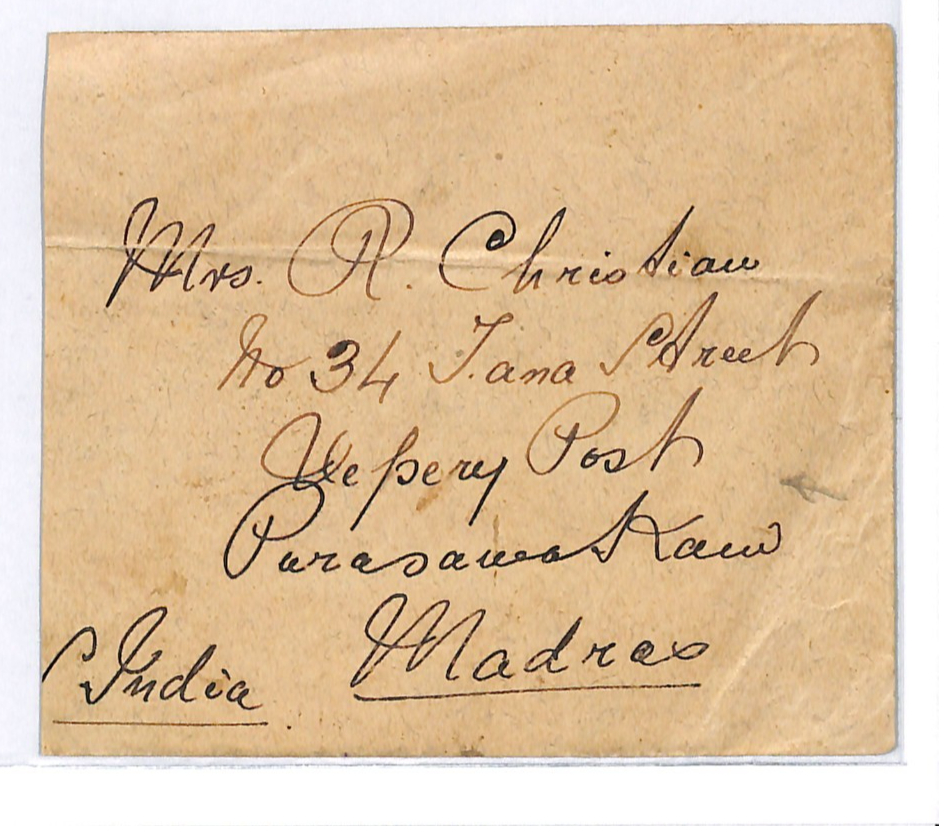 Mrs. R. Christian
No 34 Tana Street
Vepery Post
Purasawa Kam
Madras
India